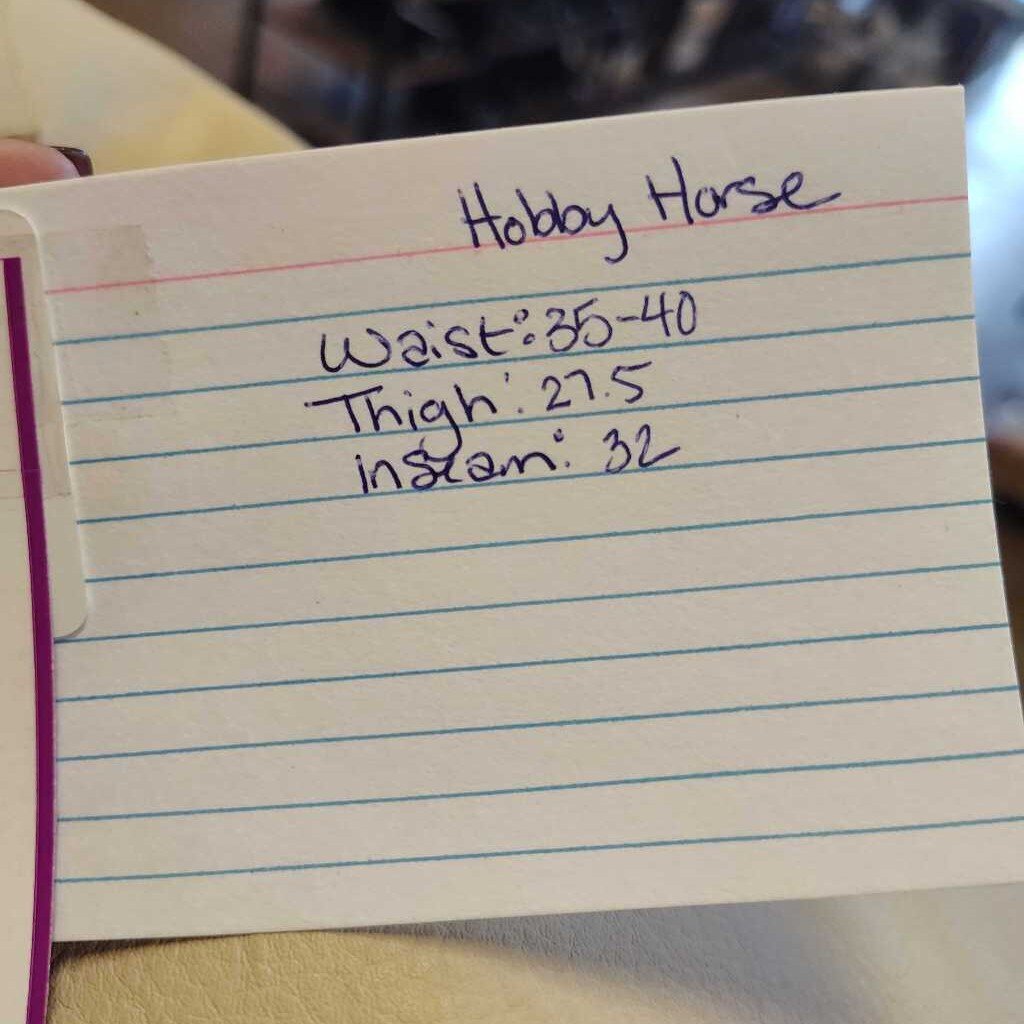 Hobby Horse
Waist: 35-40
Thigh: 27.5
inseam: 32